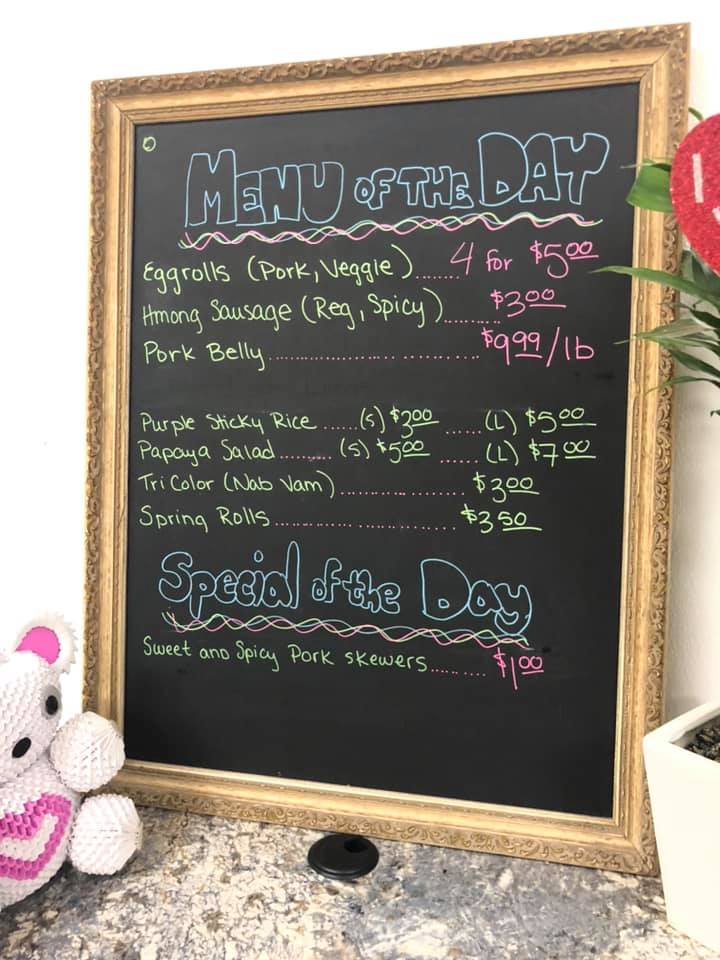 MENU OF THE DAY
Eggrolls (Pork, Veggie)........4 for $5.00
Hmong Sausage (Reg, Spicy)..........$3.00
Pork Belly..............................$9.99/lb
Purple Sticky Rice......(S) $3.00......(L) $5.00
Papaya Salad.........(S) $5.00......(L) $7.00
Tri Color (Nab Vam)...................$3.00
Spring Rolls...........................$3.50
Special of the Day
Sweet and Spicy Pork skewers..........$1.00